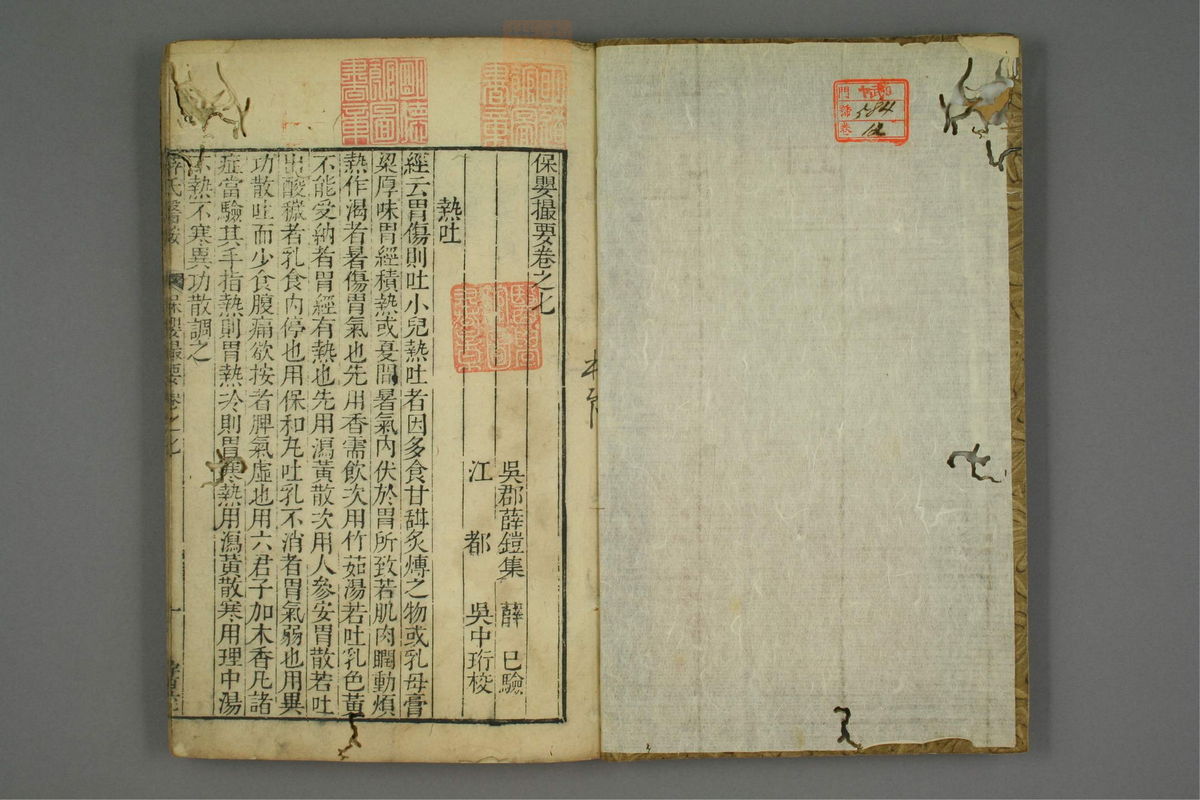 保嬰撮要卷之七
吳郡薛鎧集 薛 巳驗
江 都 吳中珩校
熱吐
經云胃傷則吐小兒熱吐者因多食甘甜炙煿之物或乳母膏
粱厚味胃經積熱或夏間暑氣內伏於胃所致若肌肉瞤動煩
熱作渴者暑傷胃氣也先用香薷飲次用竹茹湯若吐乳色黃
不能受納者胃經有熱也先用瀉黃散次用人參安胃散若吐
出酸穢者乳食內停也用保和丸吐乳不消者胃氣弱也用異
功散吐而少食腹痛欲按者脾氣虛也用六君子加木香凡諸
症當驗其手指熱則胃熱冷則胃寒熱用瀉黃散寒用理中湯
不熱不寒異功散調之
薛氏醫案 保嬰撮要卷之七 一
明德
郷圖
書章
門 號 卷
584
12